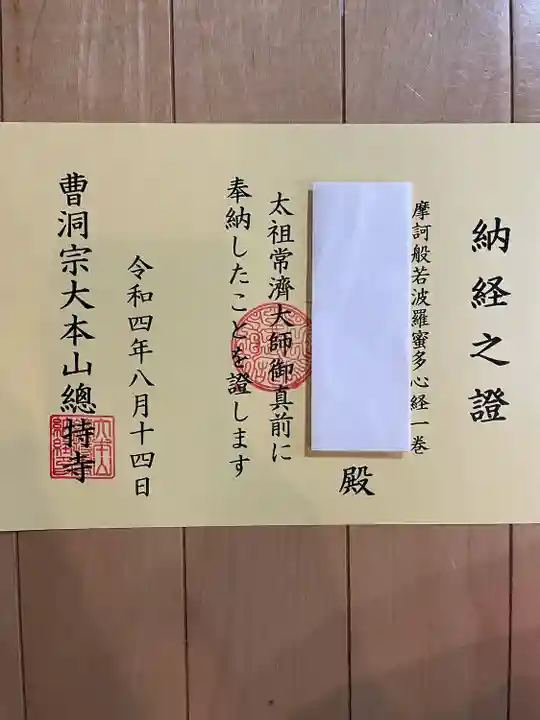 納経之證
摩訶般若波羅蜜多心経一巻
殿
太祖常濟大師御真前に
奉納したことを證します
令和四年八月十四日
曹洞宗大本山總持寺